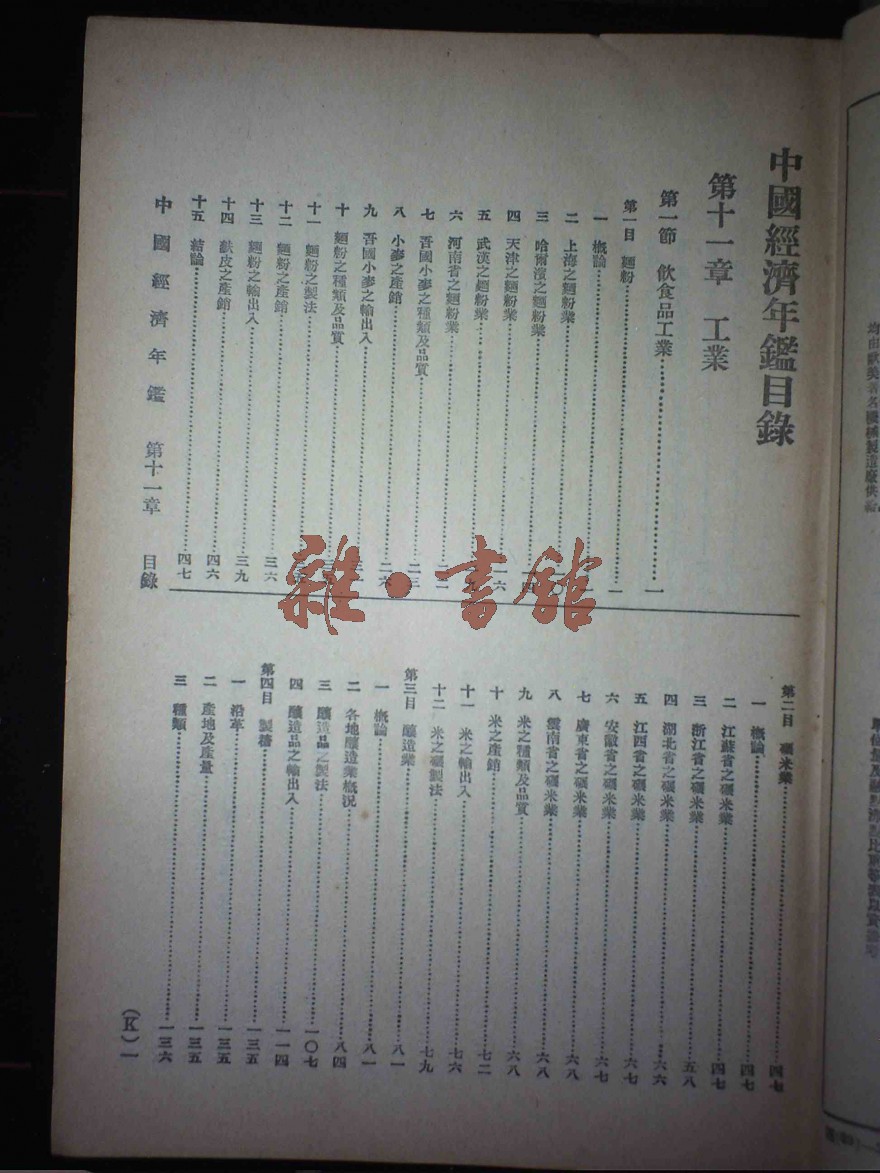 中國經濟年鑑目錄
第十一章 工業
第一節 飲食品工業 一
第一目 麵粉 一
一 概論
二 上海之麵粉業
三 哈爾濱之麵粉業
四 天津之麵粉業
五 武漢之麵粉業
六 河南省之麵粉業
七 吾國小麥之種類及品質
八 小麥之產銷 二六
九 吾國小麥之輸出入
十 麵粉之種類及品質
十一 麵粉之製法
十二 麵粉之產銷 三六
十三 麵粉之輸出入 三九
十四 麩皮之產銷 四六
十五 結論 四七
第二目 碾米業 四七
一 概論 四七
二 江蘇省之碾米業 四七
三 浙江省之碾米業 五八
四 湖北省之碾米業 六六
五 江西省之碾米業 六七
六 安徽省之碾米業 六七
七 廣東省之碾米業 六八
八 雲南省之碾米業 六八
九 米之種類及品質 六八
十 米之產銷 七二
十一 米之輸出入 七六
十二 米之碾製法 七九
第三目 釀造業 八一
一 概論 八一
二 各地釀造業概況 八四
三 釀造品之製法 一〇七
四 釀造品之輸出入 一一四
第四目 製糖 一三五
一 沿革 一三五
二 產地及產量 一三五
三 種類 一三六
中國經濟年鑑 第十一章 目錄
(K)一
雜·書館